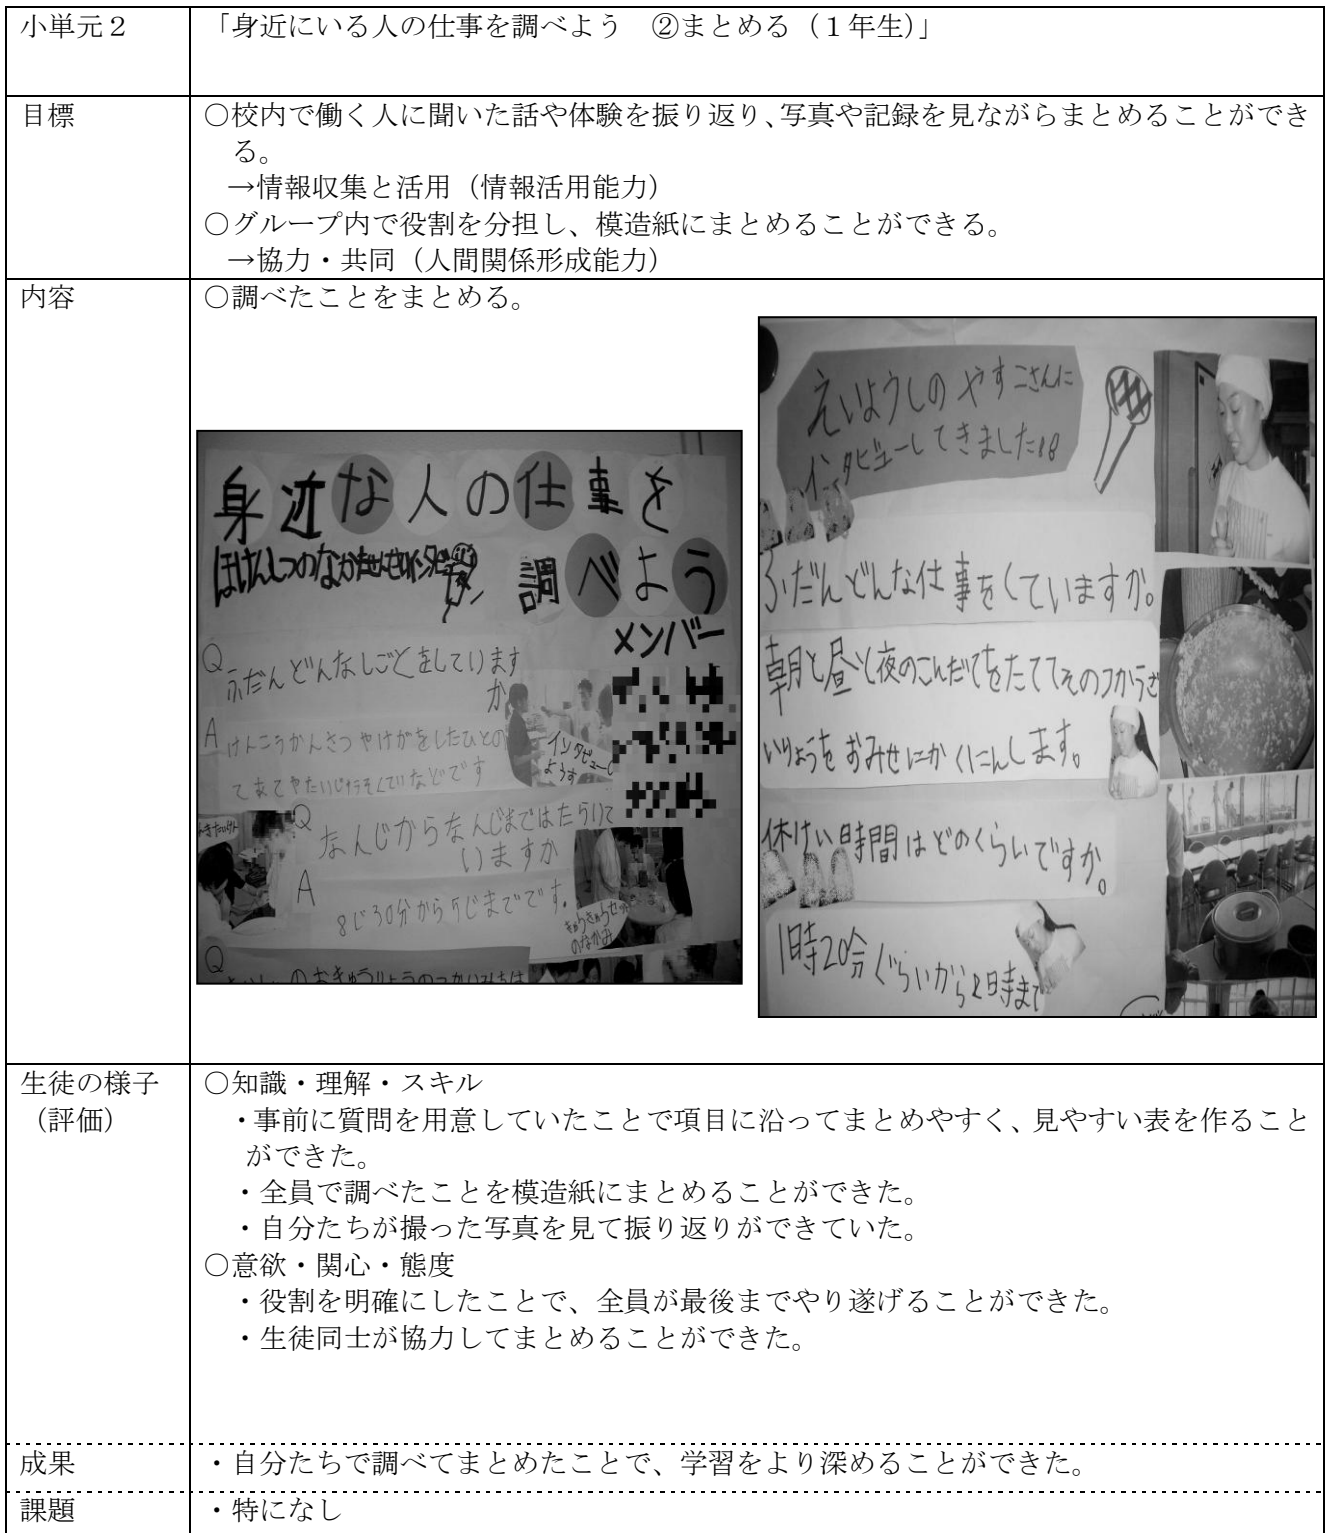 小単元２
「身近にいる人の仕事を調べよう　②まとめる（１年生）」
目標
○校内で働く人に聞いた話や体験を振り返り、写真や記録を見ながらまとめることができ
る。
→情報収集と活用（情報活用能力）
○グループ内で役割を分担し、模造紙にまとめることができる。
→協力・共同（人間関係形成能力）
内容
○調べたことをまとめる。
身近な人の仕事を
調べよう
メンバー
Q
ふだんどんなしごとをしています
か
A
けんこうかんさつやけがをしたひとの
インタビューの
ようす
Q
なんじからなんじまではたらいて
いますか
A
8じ30分から5じまでです。
きゅうきゅうセット
のなかみ
Q
えいようしのやすこさんに
インタビューしてきました
ふだんどんな仕事をくていますか。
朝と昼と夜のこんだてをたててそのつかうざ
いりょうをおみせにかくにんします。
休けい時間はどのくらいですか。
1時20分ぐらいから2時まで
生徒の様子
（評価）
○知識・理解・スキル
・事前に質問を用意していたことで項目に沿ってまとめやすく、見やすい表を作ること
ができた。
・全員で調べたことを模造紙にまとめることができた。
・自分たちが撮った写真を見て振り返りができていた。
○意欲・関心・態度
・役割を明確にしたことで、全員が最後までやり遂げることができた。
・生徒同士が協力してまとめることができた。
成果
・自分たちで調べてまとめたことで、学習をより深めることができた。
課題
・特になし